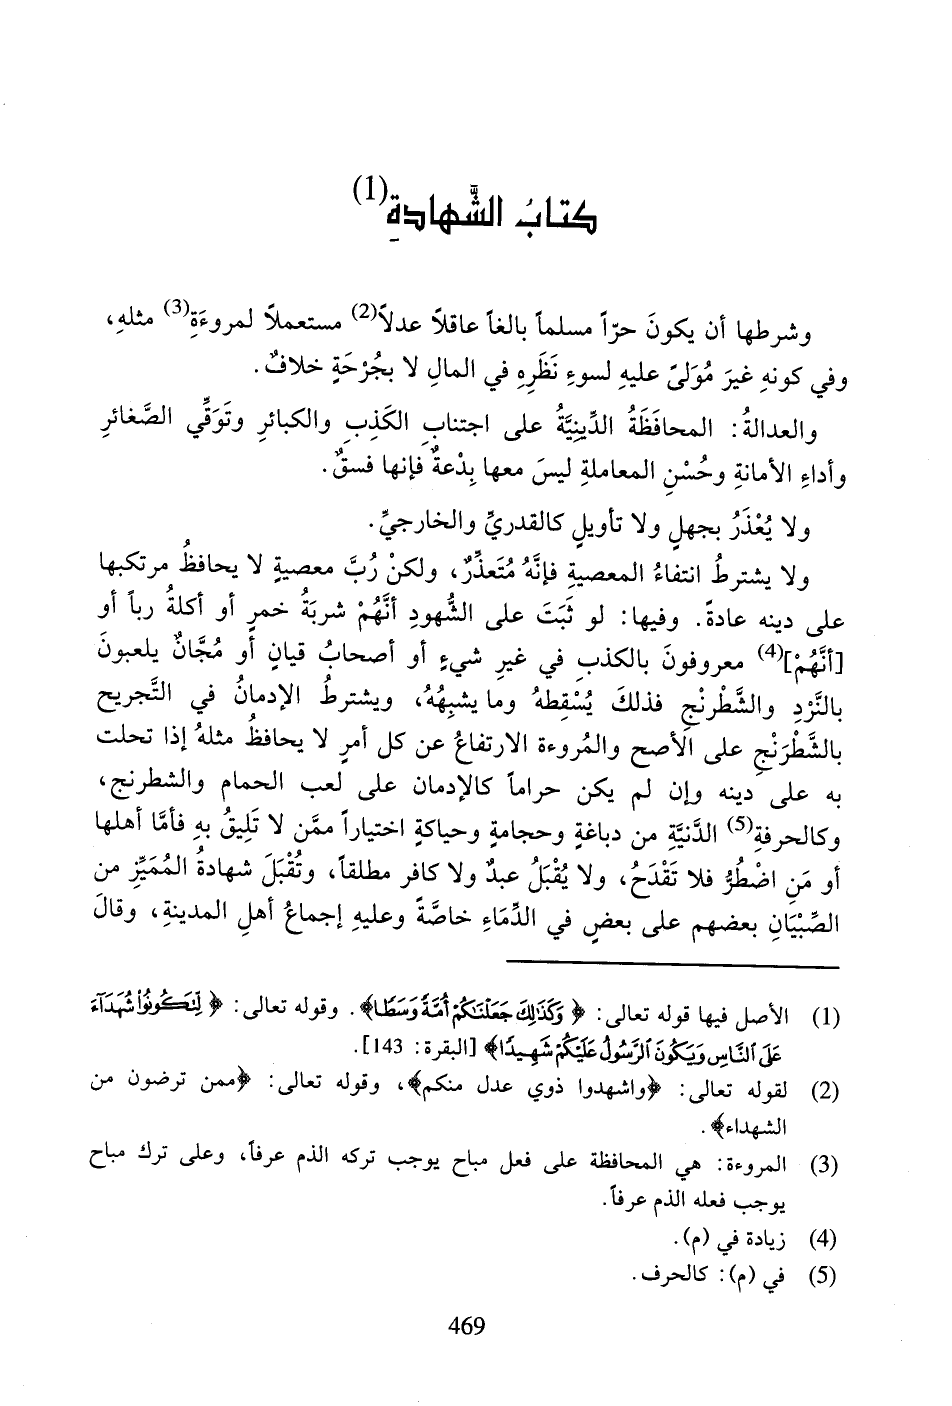 كتابُ الشَّهادةِ(1)
وشرطها أن يكونَ حرّاً مسلماً بالغاً عاقلاً عدلاً(2) مستعملاً لمروءَةِ(3) مثلهِ،
وفي كونهِ غيرَ مُوَلىً عليهِ لسوءِ نَظَرِهِ في المالِ لا بجُرْحَةٍ خلافٌ.
والعدالةُ: المحافَظَةُ الدِّينِيَّةُ على اجتنابِ الكَذِبِ والكبائرِ وتَوَقِّي الصَّغائرِ
وأداءِ الأمانةِ وحُسْنِ المعاملةِ ليسَ معها بِدْعةٌ فإنها فسقٌ.
ولا يُعْذَرُ بجهلٍ ولا تأويلٍ كالقدريِّ والخارجيِّ.
ولا يشترطُ انتفاءُ المعصيةِ فإنَّهُ مُتَعذِّرٌ، ولكنْ رُبَّ معصيةٍ لا يحافظُ مرتكبها
على دينه عادةً. وفيها: لو ثَبَتَ على الشُّهودِ أنَّهُمْ شربَةُ خمرٍ أو أكلةُ رباً أو
[أنَّهُمْ](4) معروفونَ بالكذبِ في غيرِ شيءٍ أو أصحابُ قيانٍ أو مُجَّانٌ يلعبونَ
بالنَّرْدِ والشَّطْرنْجِ فذلكَ يُسْقِطهُ وما يشبِهُهُ، ويشترطُ الإدمانُ في التَّجريح
بالشَّطْرَنْجِ على الأصح والمُروءة الارتفاعُ عن كل أمرٍ لا يحافظُ مثلهُ إذا تحلت
به على دينه وإن لم يكن حراماً كالإدمان على لعب الحمام والشطرنج،
وكالحرفةِ(5) الدَّنيَّةِ من دباغةٍ وحجامةٍ وحياكةٍ اختياراً ممَّن لا تَلِيقُ بهِ فأمَّا أهلها
أو مَنِ اضْطُرُّ فلا تَقْدَحُ، ولا يُقْبَلُ عبدٌ ولا كافر مطلقاً، وتُقْبَلَ شهادةُ المُمَيِّزِ من
الصِّبْيَانِ بعضهم على بعضٍ في الدِّمَاءِ خاصَّةً وعليهِ إجماعُ أهلِ المدينةِ، وقالَ
(1) الأصل فيها قوله تعالى: ﴿ وَكَذَٰلِكَ جَعَلْنَٰكُمْ أُمَّةً وَسَطًا﴾. وقوله تعالى: ﴿ لِّتَكُونُوا۟ شُهَدَآءَ
عَلَى ٱلنَّاسِ وَيَكُونَ ٱلرَّسُولُ عَلَيْكُمْ شَهِيدًا﴾ [البقرة: 143].
(2) لقوله تعالى: ﴿واشهدوا ذوي عدل منكم﴾، وقوله تعالى: ﴿ممن ترضون من
الشهداء﴾.
(3) المروءة: هي المحافظة على فعل مباح يوجب تركه الذم عرفاً، وعلى ترك مباح
يوجب فعله الذم عرفاً.
(4) زيادة في (م).
(5) في (م): كالحرف.
469